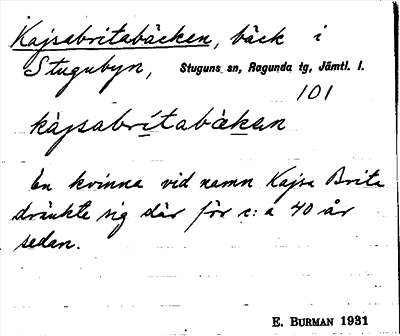 Kajsabritabäcken, bäck i
Stugubyn, Stuguns sn, Ragunda tg, Jämtl. l.
101
kàjsabrítabä̀kan
En kvinna vid namn Kajsa Brita
dränkte sig där för c:a 40 år
sedan.
E. BURMAN 1931